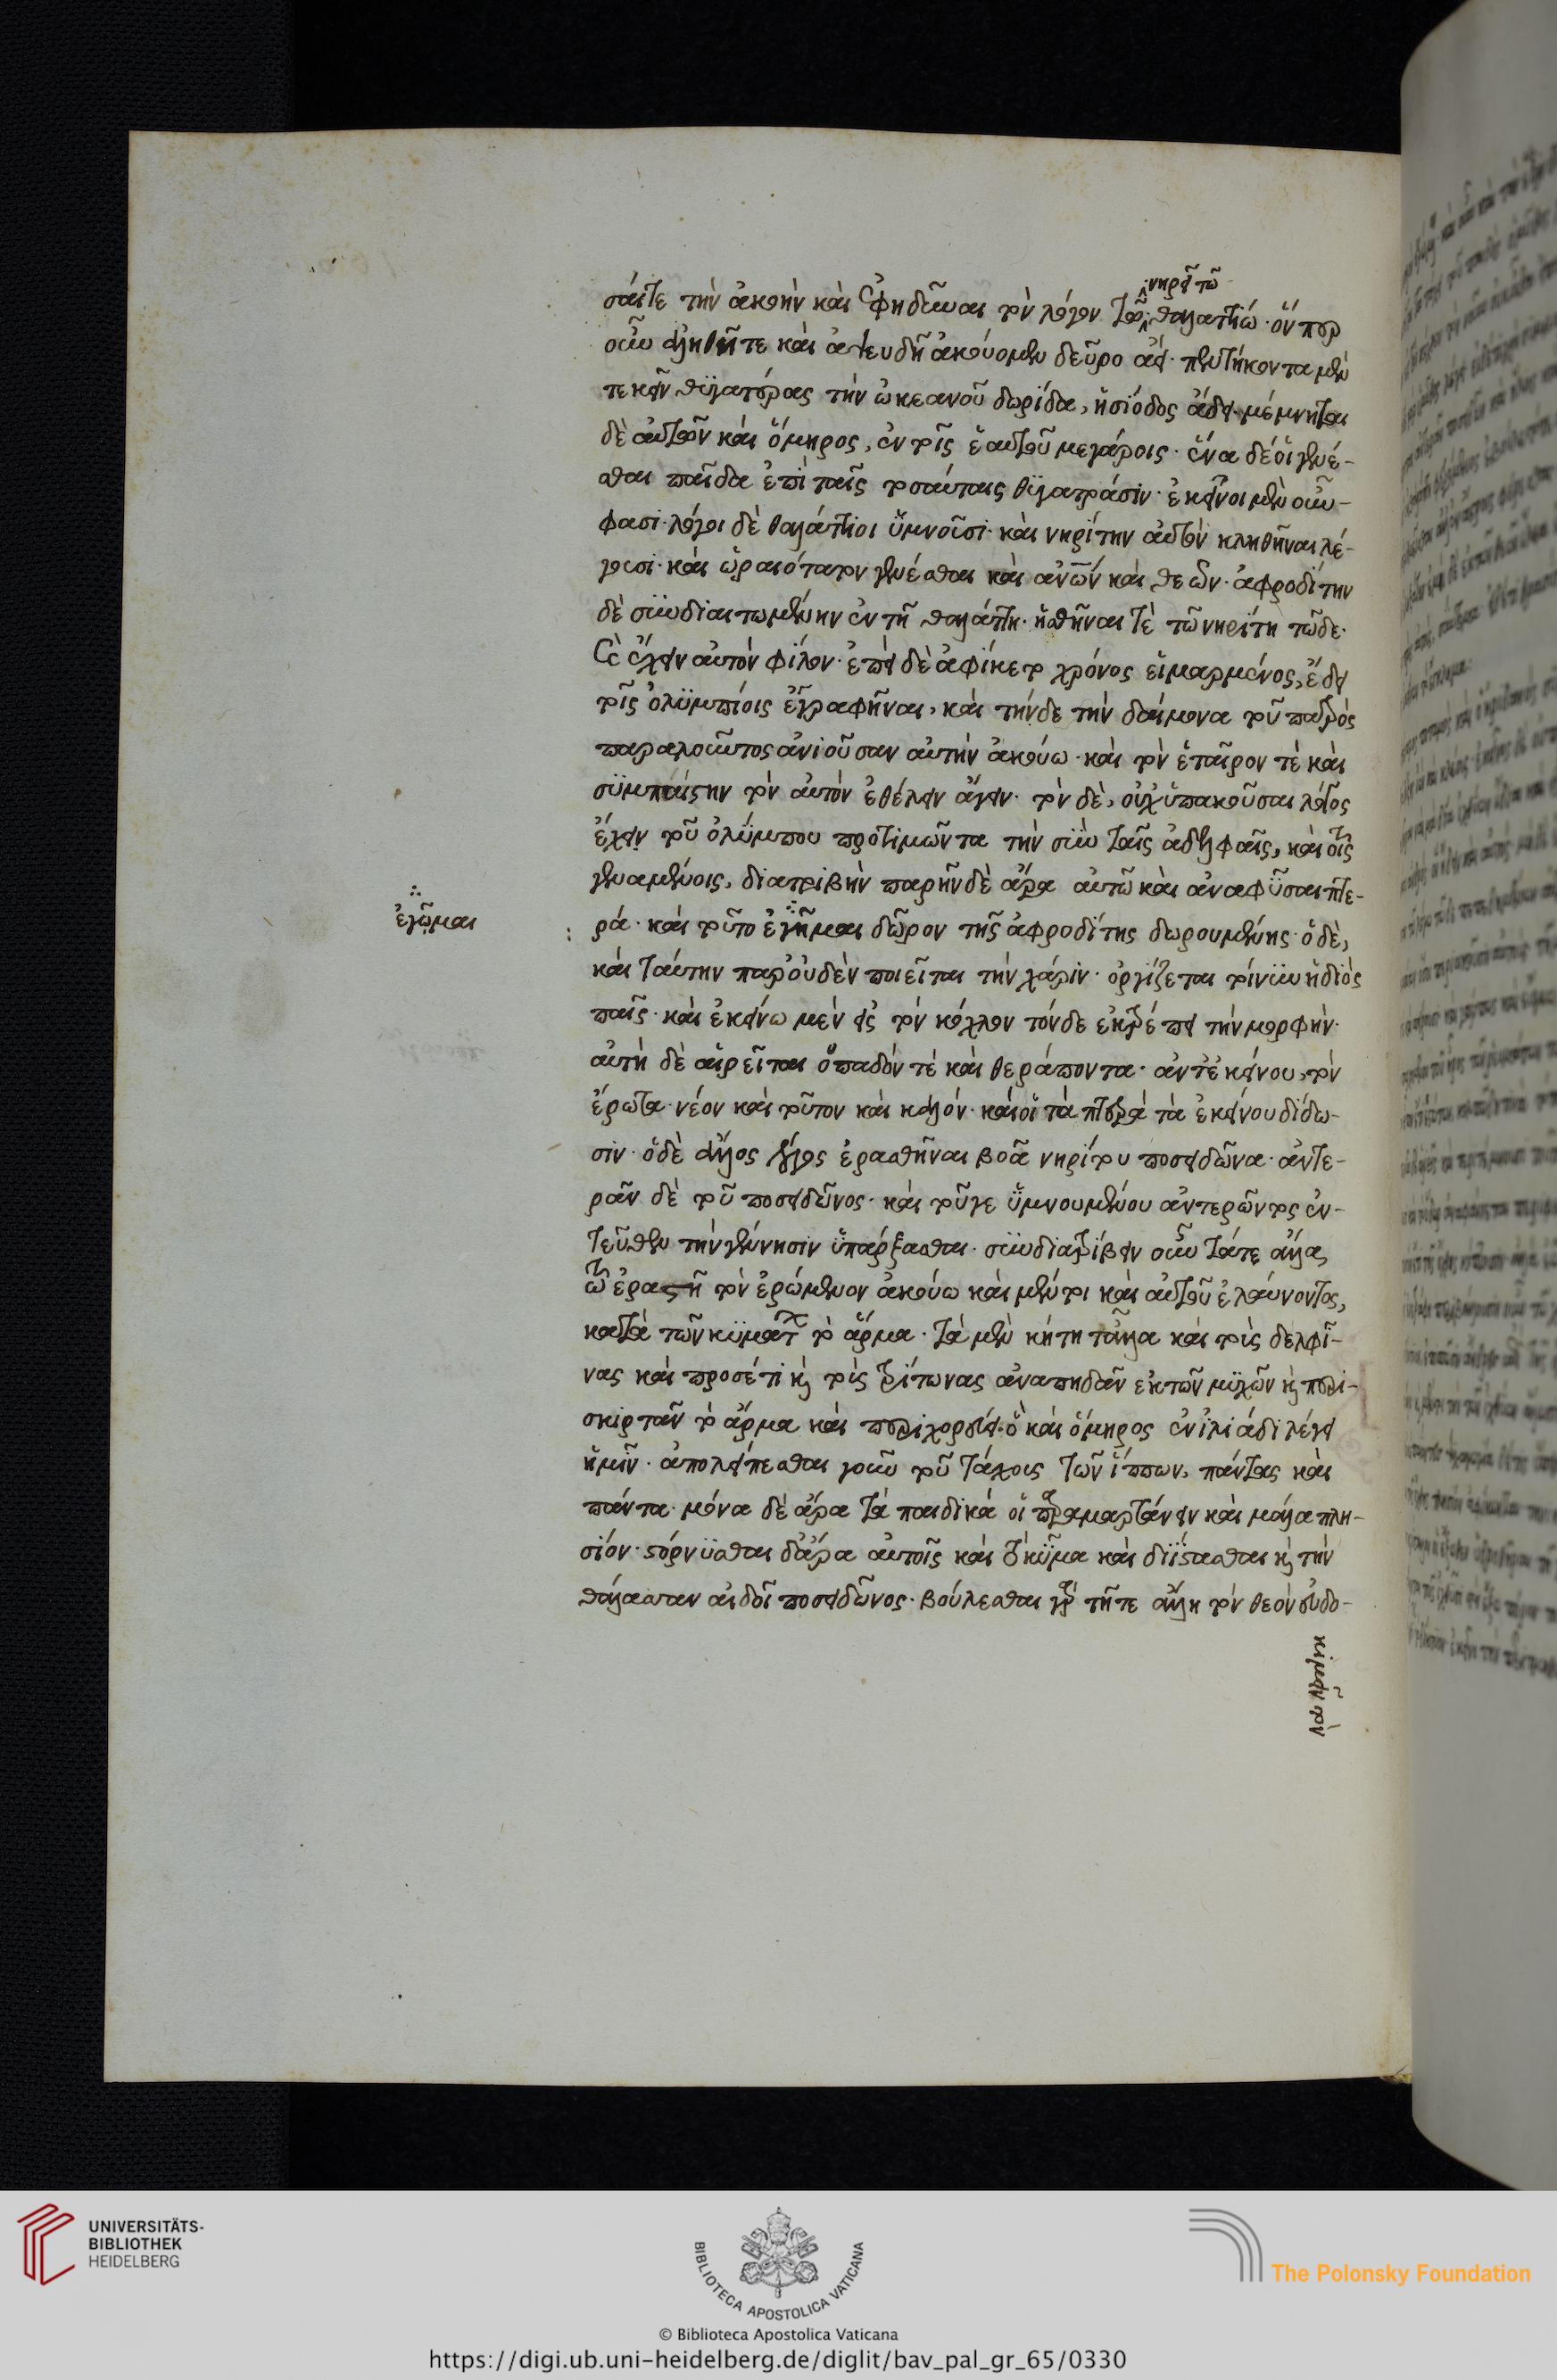 σάιτε τὴν ἀκοὴν καὶ ἐφηδῦναι τὸν λόγον τῶ θαλαττίω · ὅνπερ
νηρεῖ τῶ
οὖν ἀληθῆ τε καὶ ἀψευδῆ ἀκούομεν δεῦρο ἀεί · πεντήκοντα μὲν
τεκεῖν θϋγατέρας τὴν ὠκεανοῦ δωρίδα, ἡσίοδος ἄδει · μέμνηται
δὲ αὐτῶν καὶ ὅμηρος, ἐν τοῖς ἑαυτοῦ μεγάροις · ἕνα δέ οἱ γενέ-
σθαι παῖδα ἐπὶ ταῖς τοσαύταις θϋγατράσιν · ἐκεῖνοι μὲν οὔ-
φασι · λόγοι δὲ θαλάττιοι ὕμνοῦσι · καὶ νηρίτην αὐτὸν κληθῆναι λέ-
γουσι · καὶ ὡραιότατον γενέσθαι καὶ ἀνῶν καὶ θεῶν · ἀφροδίτην
δὲ συνδιαιτωμένην ἐν τῆ θαλάττη · ἡσθῆναί τὲ τῶ νηρίτη τῶδε ·
καὶ ἔχειν αὐτὸν φίλον · ἐπεὶ δὲ ἀφίκετο χρόνος εἱμαρμένος, ἔδει
τοῖς ὀλϋμπίοις ἐγγραφῆναι, καὶ τήνδε τὴν δαίμονα τοῦ πατρὸς
παραλοῦντος ἀνιοῦσαν αὐτὴν ἀκούω · καὶ τὸν ἑταῖρον τὲ καὶ
σϋμπαίστην τὸν αὐτὸν ἐθέλειν ἄγειν · τὸν δὲ, οὐχ ὑπακοῦσαι λόγος
ἔχει τοῦ ὀλύμπου προτιμῶντα τὴν σὺν ταῖς ἀδελφαῖς, καὶ τοῖς
γειναμένοις, διατριβὴν παρῆν δὲ ἄρα αὐτῶ καὶ ἀναφῦσαι πτε-
ρά · καὶ τοῦτο ἐγῆμαι δῶρον τῆς ἀφροδίτης δωρουμένης · ὁ δὲ,
ἐγῶμαι
καὶ ταύτην παρ' οὐδὲν ποιεῖται τὴν χάριν · ὀργίζεται τοίνυν ἡ διὸς
παῖς · καὶ ἐκείνω μὲν εἰς τὸν κόχλον τόνδε ἐκτρέπει τὴν μορφήν ·
αὐτὴ δὲ αἱρεῖται ὀπαδόν τὲ καὶ θεράποντα · ἀντ' ἐκείνου, τὸν
ἔρωτα · νέον καὶ τοῦτον καὶ καλόν · καί οἱ τὰ πτερὰ τὰ ἐκείνου δίδω-
σιν · ὁ δὲ ἄλλος λόγος ἐρασθῆναι βοᾶ νηρίτου ποσειδῶνα · ἀντε-
ρᾶν δὲ τοῦ ποσειδῶνος · καὶ τοῦγε ὑμνουμένου ἀντερῶντος ἐν-
τεῦθεν τὴν γένησιν ὑπάρξασθαι · συνδιατρίβειν οὖν τάτε ἄλλα,
τῶ ἐραστῆ τὸν ἐρώμενον ἀκούω καὶ μέντοι καὶ αὐτοῦ ἐλαύνοντος,
κατὰ τῶν κϋμάτων τὸ ἅρμα · τὰ μὲν κήτη τἆλλα καὶ τοὺς δελφῖ-
νας καὶ προσέτι καὶ τοὺς τρίτωνας ἀναπηδᾶν ἐκ τῶν μϋχῶν καὶ περι-
σκιρτᾶν τὸ ἅρμα καὶ περιχορεύει · ὃ καὶ ὅμηρος ἐν ἰλιάδι λέγει
ἡμῖν · ἀπολείπεσθαι γοῦν τοῦ τάχους τῶν ἵππων, πάντας καὶ
πάντα · μόνα δὲ ἄρα τὰ παιδικά οἱ παραμαρτάνειν καὶ μάλα πλη-
σίον · στόρνϋσθαι δ' ἄρα αὐτοῖς καὶ τὸ κῦμα καὶ διΐστασθαι καὶ τὴν
θάλασσαν αἰδοῖ ποσειδῶνος · βούλεσθαι γὰρ τῆτε ἄλλη τὸν θεὸν εὐδο-